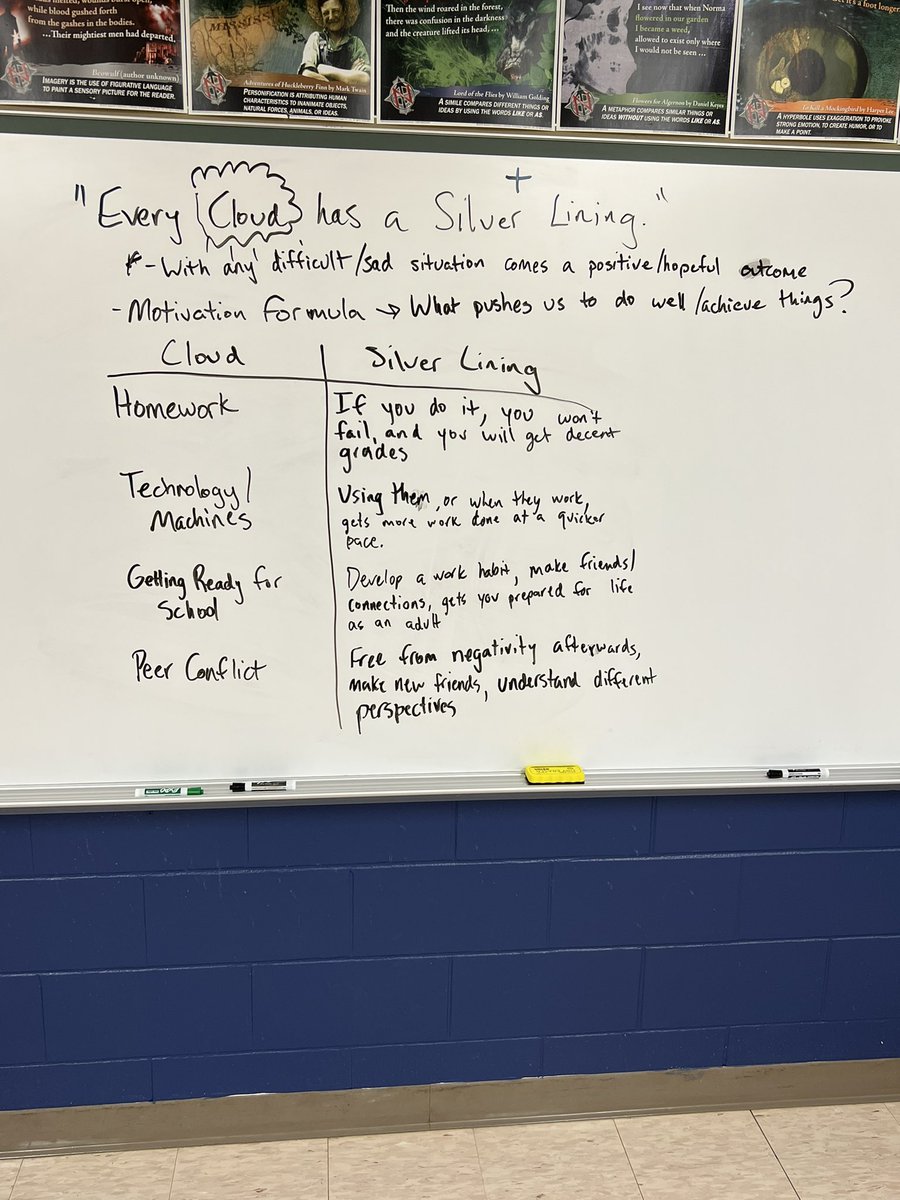 while blood gushed forth
from the gashes in the bodies.
...Their mightiest men had departed.
Beowulf (author unknown)
IMAGERY IS THE USE OF FIGURATIVE LANGUAGE
TO PAINT A SENSORY PICTURE FOR THE READER.
Adventures of Huckleberry Finn by Mark Twain
PERSONIFICATION IS ATTRIBUTING HUMAN
CHARACTERISTICS TO INANIMATE OBJECTS,
NATURAL FORCES, ANIMALS, OR IDEAS.
Then the wind roared in the forest,
there was confusion in the darkness
and the creature lifted its head, ...
Lord of the Flies by William Golding
A SIMILE COMPARES DIFFERENT THINGS OR
IDEAS BY USING THE WORDS LIKE OR AS.
I see now that when Norma
flowered in our garden
I became a weed,
allowed to exist only where
I would not be seen ...
Flowers for Algernon by Daniel Keyes
A METAPHOR COMPARES SIMILAR THINGS OR
IDEAS WITHOUT USING THE WORDS LIKE OR AS.
it's a foot longer
To Kill a Mockingbird by Harper Lee
A HYPERBOLE USES EXAGGERATION TO PROVOKE
STRONG EMOTION, TO CREATE HUMOR, OR TO
MAKE A POINT.
+
"Every Cloud has a Silver Lining."
* - With any difficult/sad situation comes a positive/hopeful outcome
- Motivation Formula → What pushes us to do well/achieve things?
Cloud | Silver Lining
Homework
If you do it, you won't
fail, and you will get decent
grades
Technology/
Machines
Using them, or when they work,
gets more work done at a quicker
pace.
Getting Ready for
School
Develop a work habit, make friends/
connections, gets you prepared for life
as an adult
Peer Conflict
Free from negativity afterwards,
make new friends, understand different
perspectives